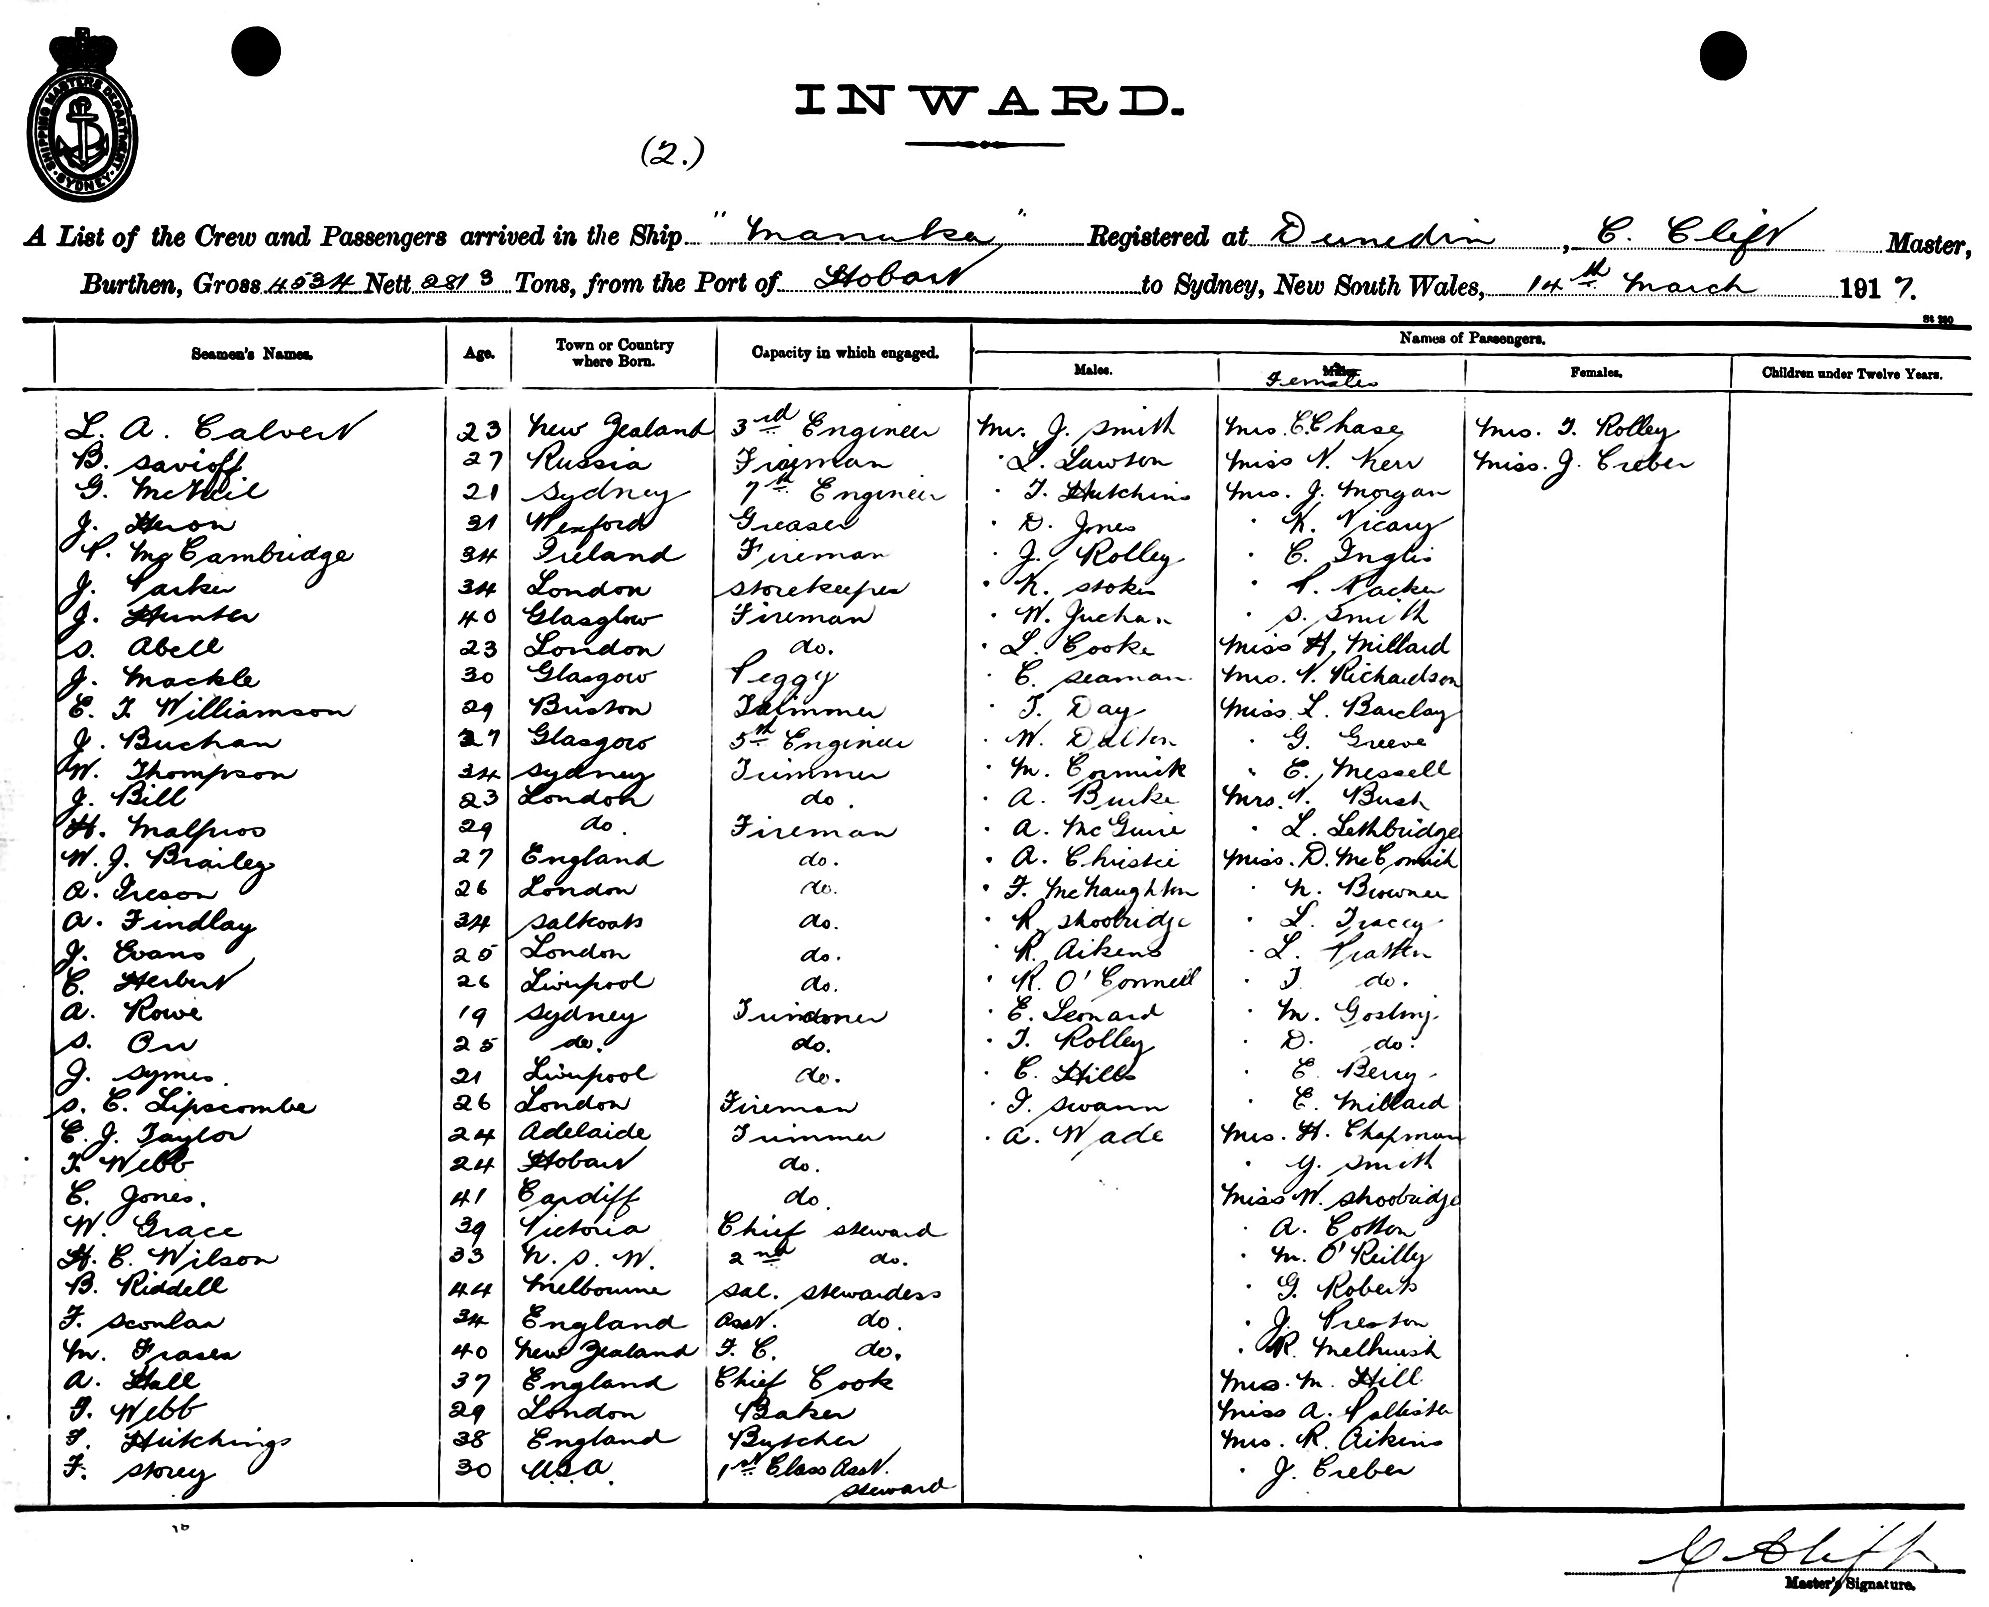 SHIPPING MASTERS DEPARTMENT · SYDNEY ·
INWARD.
(2.)
A List of the Crew and Passengers arrived in the Ship "Manuka" Registered at Dunedin, C. Clift Master,
Burthen, Gross 4534 Nett 2813 Tons, from the Port of Hobart to Sydney, New South Wales, 14th March 1917.
St 290
Seamen's Names. Age. Town or Country where Born. Capacity in which engaged. Names of Passengers.
Males. Females Females. Children under Twelve Years.
L. A. Calvert 23 New Zealand 3rd Engineer Mr. J. Smith Mrs. C. Chase Mrs. T. Rolley
B. Savioff 27 Russia Fireman · L. Lawson Miss N. Kerr Miss. J. Creber
G. McNeil 21 Sydney 7th Engineer · T. Hutchins Mrs. J. Morgan
J. Heron 31 Wexford Greaser · D. Jones · K. Vicary
P. McCambridge 34 Ireland Fireman · J. Rolley · C. Inglis
J. Parker 34 London Storekeeper · K. Stokes · P. Packer
J. Hunter 40 Glasglow Fireman · W. · S. Smith
S. Abell 23 London do. · L. Cooke Miss H. Millard
J. Mackle 30 Glasgow Peggy · C. Seaman Mrs. N. Richardson
E. T. Williamson 29 Buston Trimmer · T. Day Miss L. Barclay
J. Buchan 27 Glasgow 5th Engineer · W. Dalton · G. Greeve
W. Thompson 34 Sydney Trimmer · M. Cormick · E. Messell
J. Bill 23 London do. · A. Burke Mrs. N. Bush
H. Malpros 29 do. Fireman · A. McGuire · L. Lethbridge
W. J. Brailey 27 England do. · A. Christie Miss. D. McCormick
A. Ireson 26 London do. · F. McNaughton · N. Browner
A. Findlay 34 Saltcoats do. · R. Shoobridge · L. Tracey
J. Evans 25 London do. · R. Aikens · L. Pratten
C. Herbert 26 Liverpool do. · R. O'Connell · T do.
A. Rowe 19 Sydney Trimmer · E. Leonard · M. Gosling
S. Orr 25 do. do. · T. Rolley · D. do.
J. Symes. 21 Liverpool do. · C. Hills · E Berry
S. C. Lipscombe 26 London Fireman · T. Swann · E. Millard
C. J. Taylor 24 Adelaide Trimmer · A. Wade Mrs. H. Chapman
T. Webb 24 Hobart do. · G. Smith
C. Jones. 41 Cardiff do. Miss W. Shoobridge
W. Grace 39 Victoria Chief Steward · A. Cotton
H. C. Wilson 33 N. S. W. 2nd do. · M. O'Reilly
B. Riddell 44 Melbourne Sal. Stewardess · G. Roberts
F. Sconlan 34 England Asst. do. · J. Preston
M. Fraser 40 New Zealand F. C. do. · R. Melhuish
A. Hall 37 England Chief Cook Mrs. M. Hill
T. Webb 29 London Baker Miss A. Pallister
T. Hutchings 38 England Butcher Mrs. R. Aikins
F. Storey 30 U.S.A. 1st Class Asst. Steward · J. Creber
C Clift
Master's Signature.